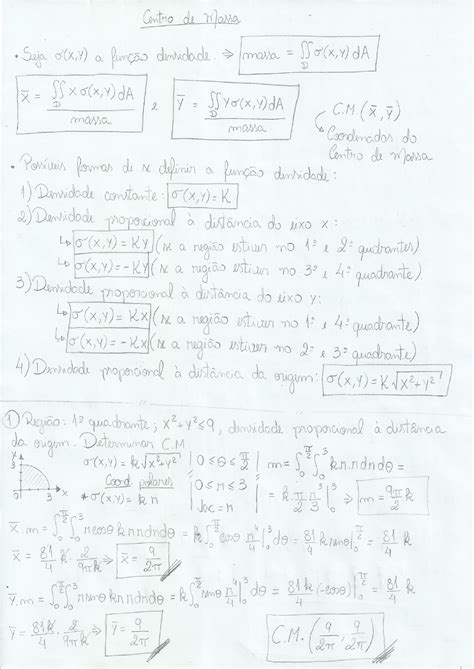 Centro de Massa
• Seja σ(x,y) a função densidade. ⇒ massa = ∬_D σ(x,y) dA
x̄ = ∬_D x σ(x,y) dA / massa e ȳ = ∬_D y σ(x,y) dA / massa
C.M (x̄, ȳ)
↳ Coordenadas do
Centro de Massa
• Possíveis formas de se definir a função densidade:
1) Densidade constante: σ(x,y) = K
2) Densidade proporcional à distância do eixo x:
↳ σ(x,y) = Ky (se a região estiver no 1º e 2º quadrantes)
↳ σ(x,y) = -Ky (se a região estiver no 3º e 4º quadrante)
3) Densidade proporcional à distância do eixo y:
↳ σ(x,y) = Kx (se a região estiver no 1º e 4º quadrante)
↳ σ(x,y) = -Kx (se a região estiver no 2º e 3º quadrante)
4) Densidade proporcional à distância da origem: σ(x,y) = K√(x²+y²)
① Região: 1º quadrante; x²+y² ≤ 9, densidade proporcional à distância
da origem. Determinar C.M
y 3 3 x
σ(x,y) = k√(x²+y²)
Coord polares
* σ(x,y) = k r
0 ≤ θ ≤ π/2
0 ≤ r ≤ 3
Jac = r
m = ∫₀^{π/2} ∫₀³ k r r dr dθ =
= k · π/2 · r³/3 |₀³ ⇒ m = 9π/2 k
x̄.m = ∫₀^{π/2} ∫₀³ r cosθ k r r dr dθ = k ∫₀^{π/2} cosθ r⁴/4 |₀³ dθ = 81/4 k senθ |₀^{π/2} = 81/4 k
x̄ = 81/4 k · 2/9πk ⇒ x̄ = 9/2π
ȳ.m = ∫₀^{π/2} ∫₀³ r senθ k r r dr dθ = k ∫₀^{π/2} senθ r⁴/4 |₀³ dθ = 81/4 k (-cosθ) |₀^{π/2} = 81/4 k
ȳ = 81k/4 · 2/9πk ⇒ ȳ = 9/2π
C.M. (9/2π, 9/2π)